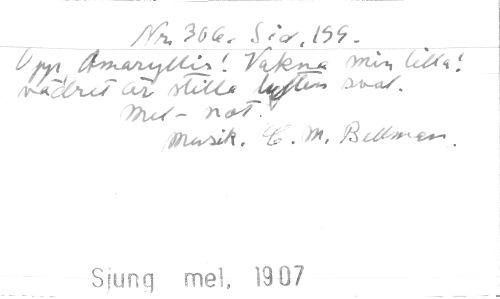 Nr. 306. Sid. 199.
Opp Amaryllis! Vakna min lilla!
vädret är stilla luften sval.
Mel- not.
Musik. C. M. Bellman.
Sjung mel, 1907